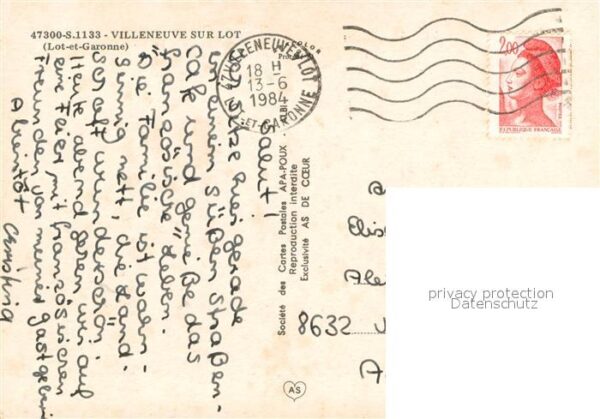 47300-S.1133 - VILLENEUVE SUR LOT
(Lot-et-Garonne)
Salut!
Ich sitze hier gerade
in einem süßen Straßen-
café und genieße das
französische Leben.
Die Familie ist wahn-
sinnig nett, die Land-
schaft wunderschön.
Heute abend gehen wir auf
eine Feier mit französischen
Freunden von meiner Gastgeberin
A bientôt
Christina
Société des Cartes Postales APA-POUX
Reproduction interdite
Exclusivité AS DE CŒUR
AS
47 VILLENEUVE S/LOT
18 H
13-6
1984
LOT-ET-GARONNE
2,00
REPUBLIQUE FRANÇAISE
8632
privacy protection
Datenschutz